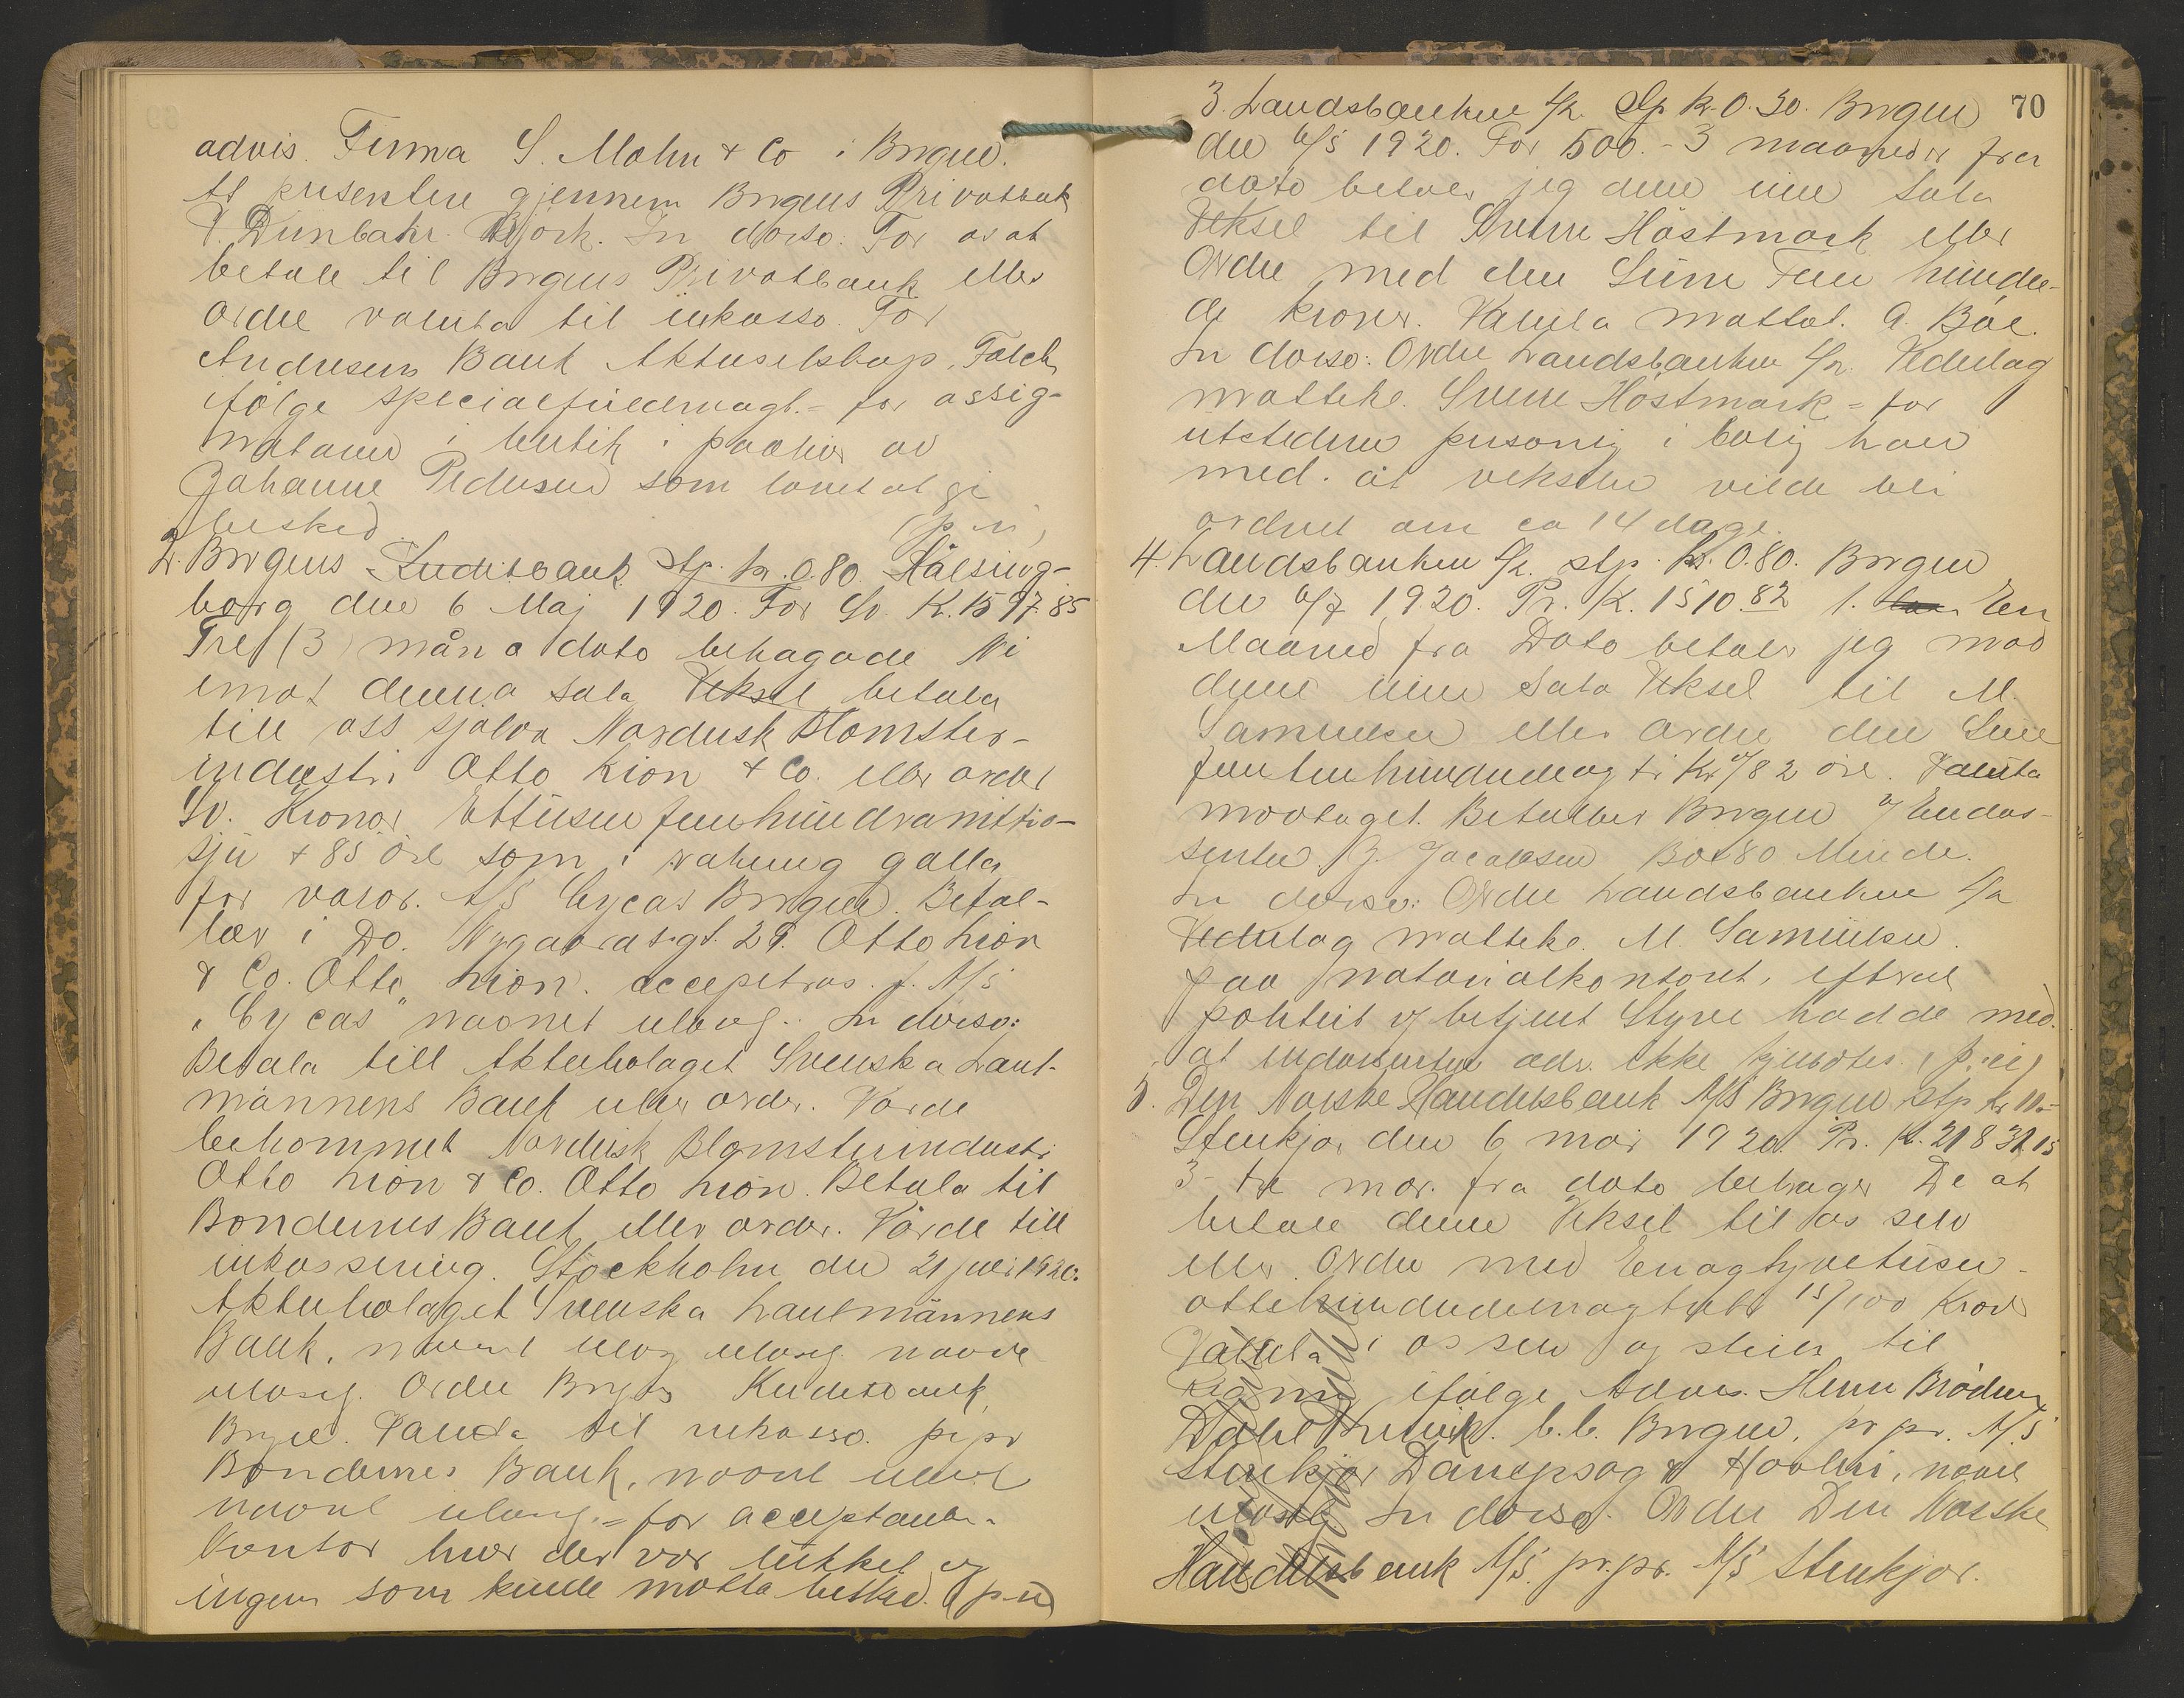 advis. Firma S. Mohn & Co i Bergen.
At presentere gjennem Bergens Privatbank
In dorso: For os at
betale til Bergens Privatbank eller
ordre valuta til inkasso. For
Andresens Bank Aktieselskap. Falch
ifølge specialfuldmagt. = for assig-
nataren i butik i paahør av
Johanne Pedersen som lovet at gi
besked. (p.n)
2. Bergens Kreditbank Stp. kr. 0.80. Hälsing-
borg den 6 Maj 1920. For Sv. K. 1597.85
Tre (3) mån a dato behagade Ni
emot denna sola Veksel betala
till oss sjalva Nordisk Blomster-
industri Otto Lion & Co. eller order
Sv. Kronor Ettusen femhundranittio-
sju & 85 öre som i räkning galler
for varor. A/S Cycas Bergen. Betal-
bar i Do. Nygaardsgt. 29. Otto Lion
& Co. Otto Lion. acceptras. f. A/S
"Cycas" navnet ulæsel. In dorso:
Betala till Aktiebolaget Svenska Lant-
männens Bank eller order. Värde
bekommet Nordisk Blomsterindustri
Otto Lion & Co. Otto Lion. Betala til
Böndernes Bank eller order. Värde till
inkassering. Stockholm den 21 juli 1920.
Aktiebolaget Svenska Lantmännens
Bank, navnet ulæsel. navne
ulæsel. Ordre Bergens Kreditbank,
Bergen. Valuta til inkasso. pr pr
Böndernes Bank, navnet ulæsel
navnet ulæsel. = for acceptantens
Kontor hvor der var lukket og
ingen som kunde motta besked. (p.n)
70
3. Landsbanken A/L. Stp. Kr. 0.30. Bergen
den 6/5 1920. For 500.- 3 maaneder fra
dato betaler jeg denne min sola
Veksel til Sverre Höstmark eller
Ordre med den Sum Fem hundre-
de kroner. Valuta mottat. A. Böe.
In dorso: Ordre Landsbanken A/L. Vederlag
mottatt. Sverre Höstmark = for
utstederen personlig i bolig han
med. at vekselen vilde bli
ordnet om ca 14 dage.
4. Landsbanken A/L. stp. Kr. 0.80. Bergen
den 6/7 1920. Pr. K. 1510.82 1. En
Maaned fra Dato betaler jeg mod
denne min Sola Veksel til M.
Samuelsen eller ordre den Sum
femtenhundredeogti Kr. 82 öre. Valuta
modtaget. Betalbar Bergen Endos-
senten. J. Jacobsen Box 80 Minde.
In dorso: Ordre Landsbanken A/L
Vederlag mottatt. M. Samuelsen.
paa notarialkontoret, efterat
politiet v/ betjent Styve hadde med.
at endossentens adr. ikke kjendtes. (p.n)
5. Den Norske Handelsbank A/S Bergen Stp. kr. 11.-
Stenkjær den 6 mai 1920. Pr. K. 21831.15
3 - tre mdr. fra dato behager De at
betale denne Veksel til os selv
eller Ordre med Enogtyvetusen-
ottehundredeenogtreti 15/100 Kroner
Valuta i os selv og stilles til
Regning ifølge Advis. Herrer Brødrene
Dahl b.b. Bergen. pr pr. A/S
Stenkjær Dampsag & Høvleri, navnet
ulæselig In dorso: Ordre Den Norske
Handelsbank A/S. pr. pr. A/S Stenkjær.